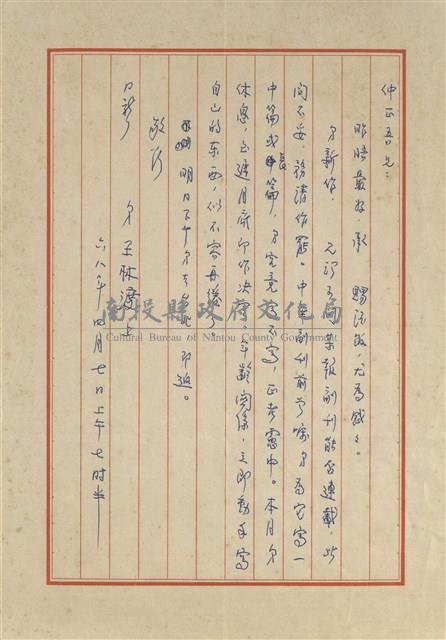 仲正吾兄：
昨晤甚好，承　賜活頁，尤為感之。
弟新作，　兄謂可商業報副刊能否連載，此
間不妥，務請作罷。中華副刊前曾囑弟為它寫一
中篇或長篇，弟究竟寫不寫，正考慮中。本月弟
休息，至遲月底即作決定。年齡関係，立即動手寫
自己的东西，似不容再緩了。
明日下午弟去台北，即返。
敬頌
日新
弟　王　上
六八年四月七日上午七时半
南投縣政府文化局
Cultural Bureau of Nantou County Government